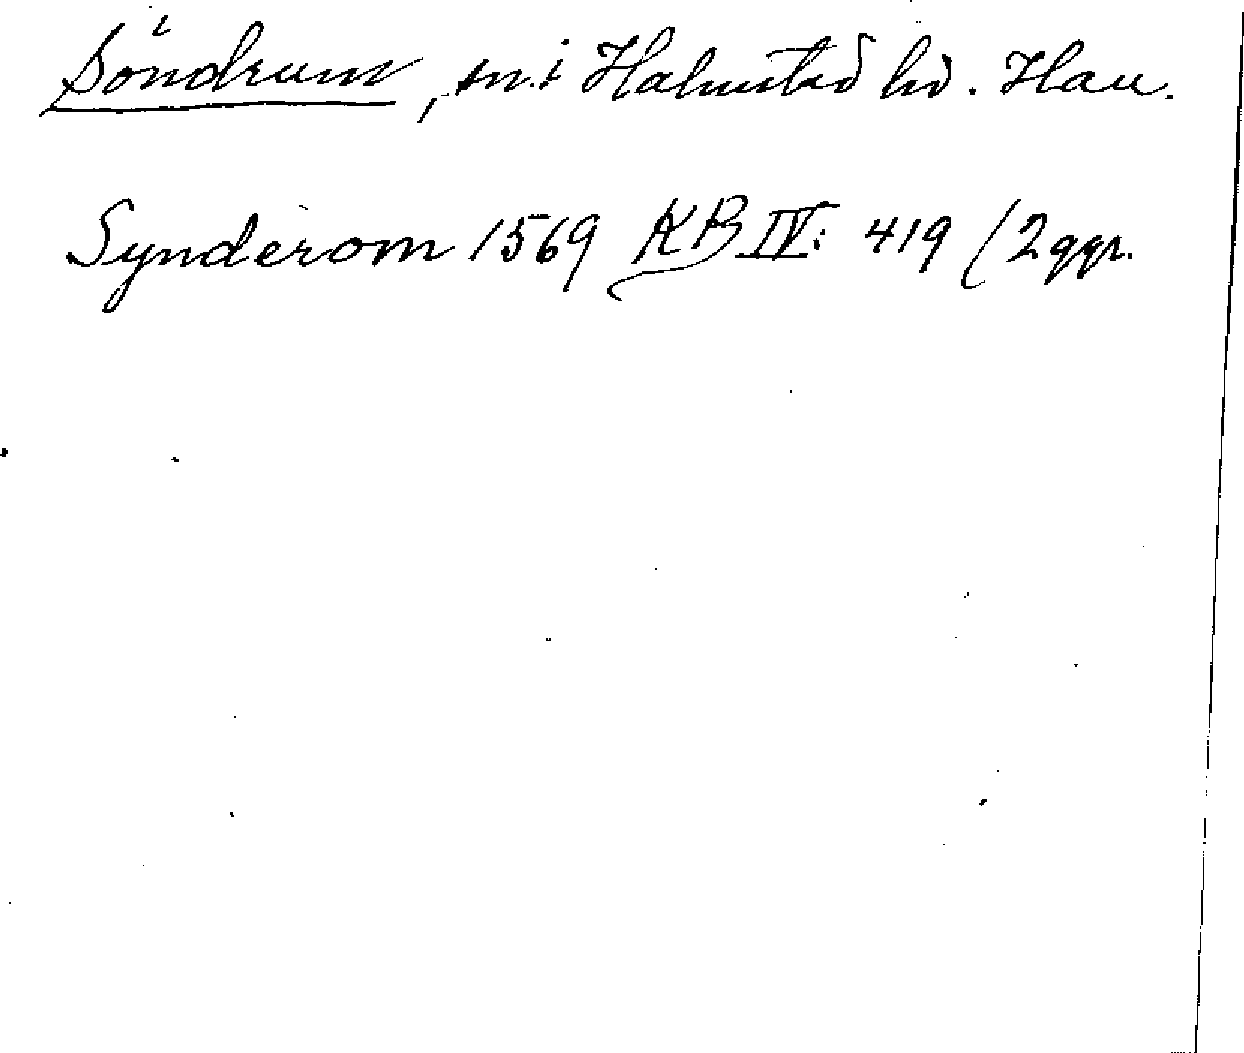 Söndrum, sn. i Halmstad hd. Hall.
Synderom 1569 KB IV: 419 (2 ggr.